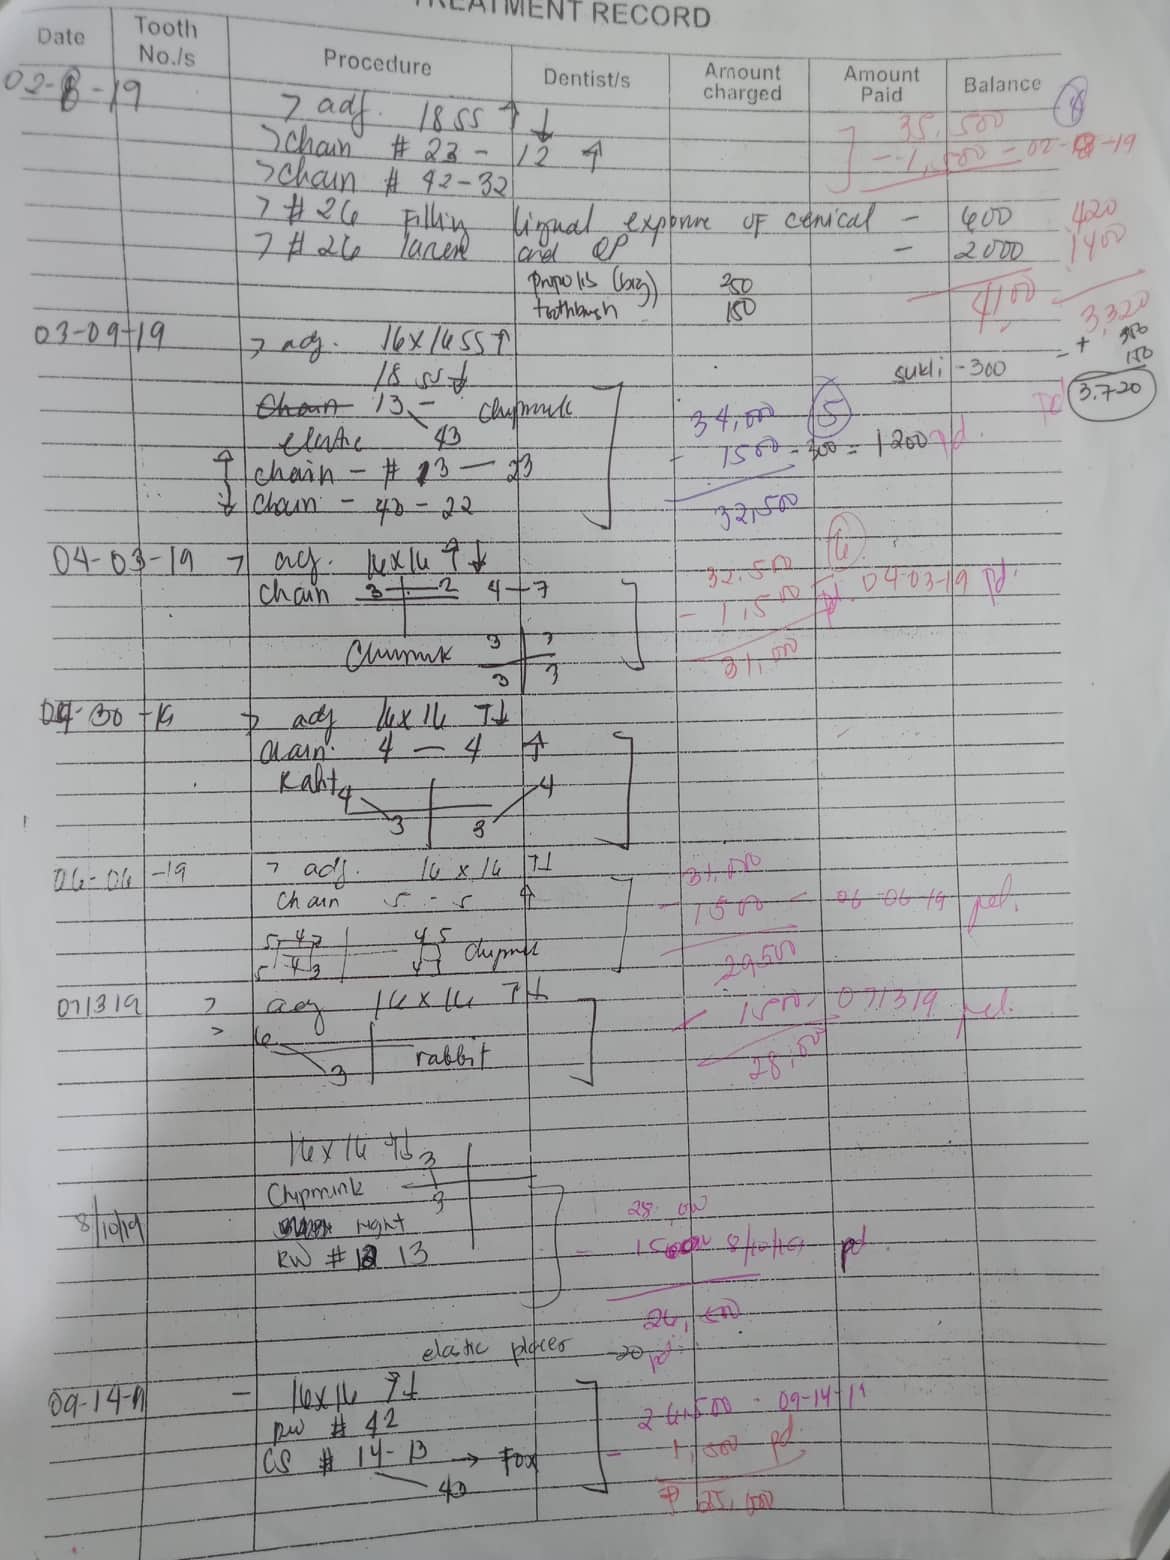 TREATMENT RECORD
Date Tooth No./s Procedure Dentist/s Amount charged Amount Paid Balance
02-8-19
> adj. 18 SS ↑ ↓ 35,500
> Chain # 23 - 12 ↑ - 1,500 - 02-8-19
> Chain # 42-32
> # 26 Filling lingual exposure of cervical - 600 420
> # 26 and OP - 2000 1400
propolis (big) 250 4,100
toothbrush 150 3,320
03-09-19 > adj. 16x16 SS ↑ + 250
18 SS ↓ sukli - 300 150
13 - Chipmunk 34,000 5 pd 3,720
elastic 43 - 1500 - 300 = 1200 pd.
↑ chain - # 13 - 23
↓ Chain - 43 - 22 32,500
04-03-19 > adj. 16x16 ↑↓ 32,500 6
Chain 3 2 4-7 - 1,500 pd. 04-03-19 pd.
Chipmunk 3 3 31,000
3 3
04-30-19 > adj 16x16 ↑↓
Chain 4 - 4 ↑
4 4
3 3
06-06-19 > adj. 16 x 16 ↑↓ 31,000
Chain 5 - 5 ↑ - 1500 - 06-06-19 pd.
5 4 3 4 5
5 4 3 29,500
071319 > adj 16x16 ↑↓ - 1500 - 071319 pd.
> 6 rabbit 28,000
3
16x16 ↑↓ 3
Chipmunk 3 28,000
8/10/19 right - 1500 8/10/19 pd
RW # 13
26,500
elastic placer -20 pd.
09-14-19 - 16x16 ↑↓ 26,500 - 09-14-19
RW # 42 - 1,500 pd
CS # 14-13 → Fox
43 ₱ 25,000